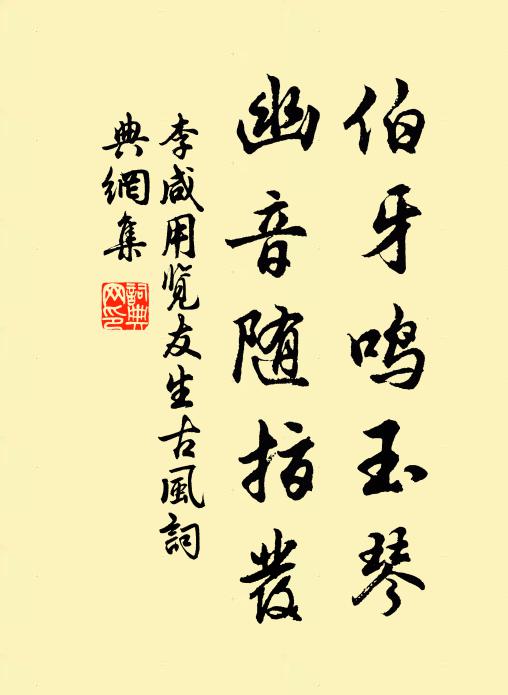 伯牙鸣玉琴
幽音随指發
李咸用览友生古風詞
典網集
詞典网印